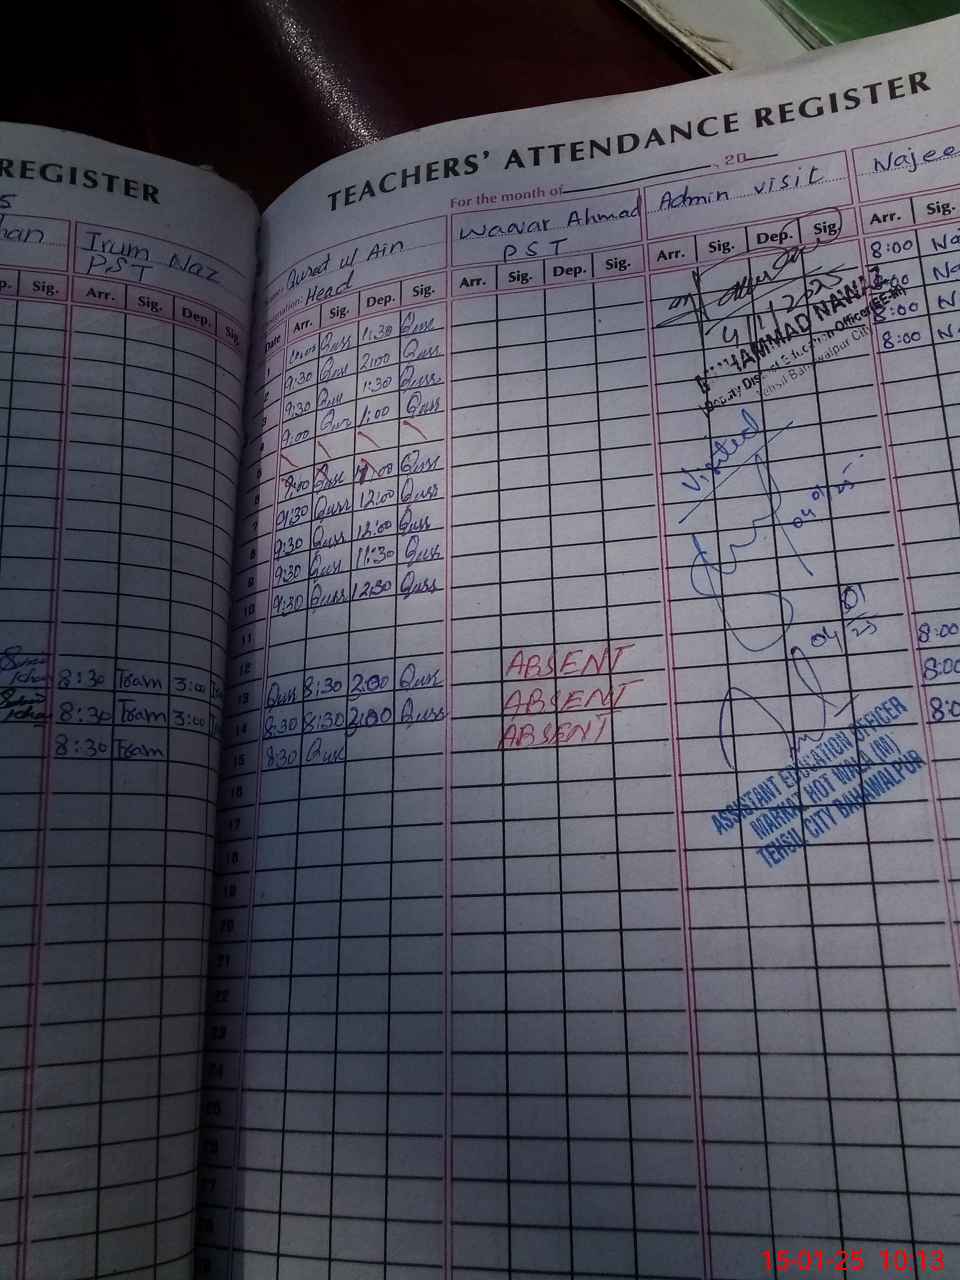 REGISTER
TEACHERS' ATTENDANCE REGISTER
For the month of , 20
5
han
Irum Naz
PST
Qurat ul Ain
Head
Waqar Ahmad
PST
Admin visit
Najee
p. Sig. Arr. Sig. Dep. Sig.
Date Arr. Sig. Dep. Sig. Arr. Sig. Dep. Sig. Arr. Sig. Dep. Sig. Arr. Sig.
1 Quss 1:30 Quss 8:00 Na
2 9:30 Qus 2:00 Quss
3 9:30 Qus 1:30 Quss 8:00 N
4 9:00 Qus 1:00 Quss 8:00 N
5
6 9:00 Quss 1:00 Quss
7 9:30 Quss 12:00 Quss
8 9:30 Quss 12:00 Quss
9 9:30 Qus 11:30 Quss
10 9:30 Quss 12:30 Quss
11
12 ABSENT
8:30 Iram 3:00 13 Quss 8:30 2:00 Quss ABSENT 8:00
8:30 Iram 3:00 14 8:30 8:30 2:00 Quss ABSENT 8:0
8:30 Iram 15 8:30 Qus
16
17
18
19
20
21
22
23
24
25
26
27
28
4/1/2025
MUHAMMAD NAWAZ
Deputy District Education Officer (EE-M)
Tehsil Bahawalpur City
Visited
04 01
25
04 01
25
ASSISTANT EDUCATION OFFICER
MARKAZ HOT WALA (M)
TEHSIL CITY BAHAWALPUR
15-01-25 10:13